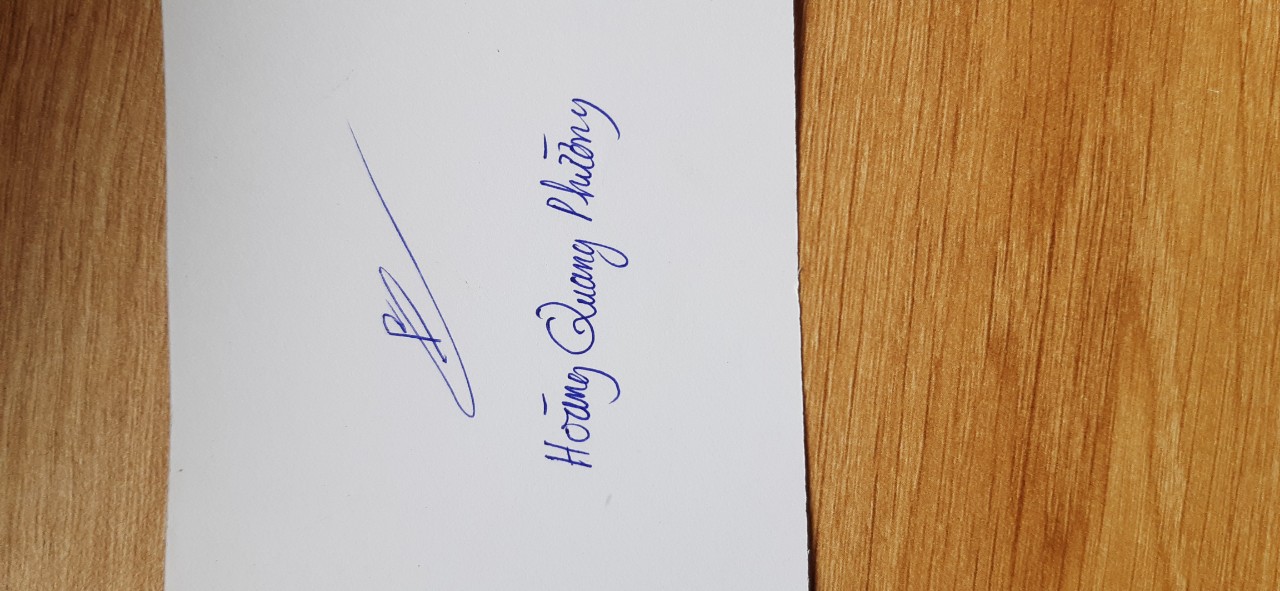 Hoàng Quang Phường